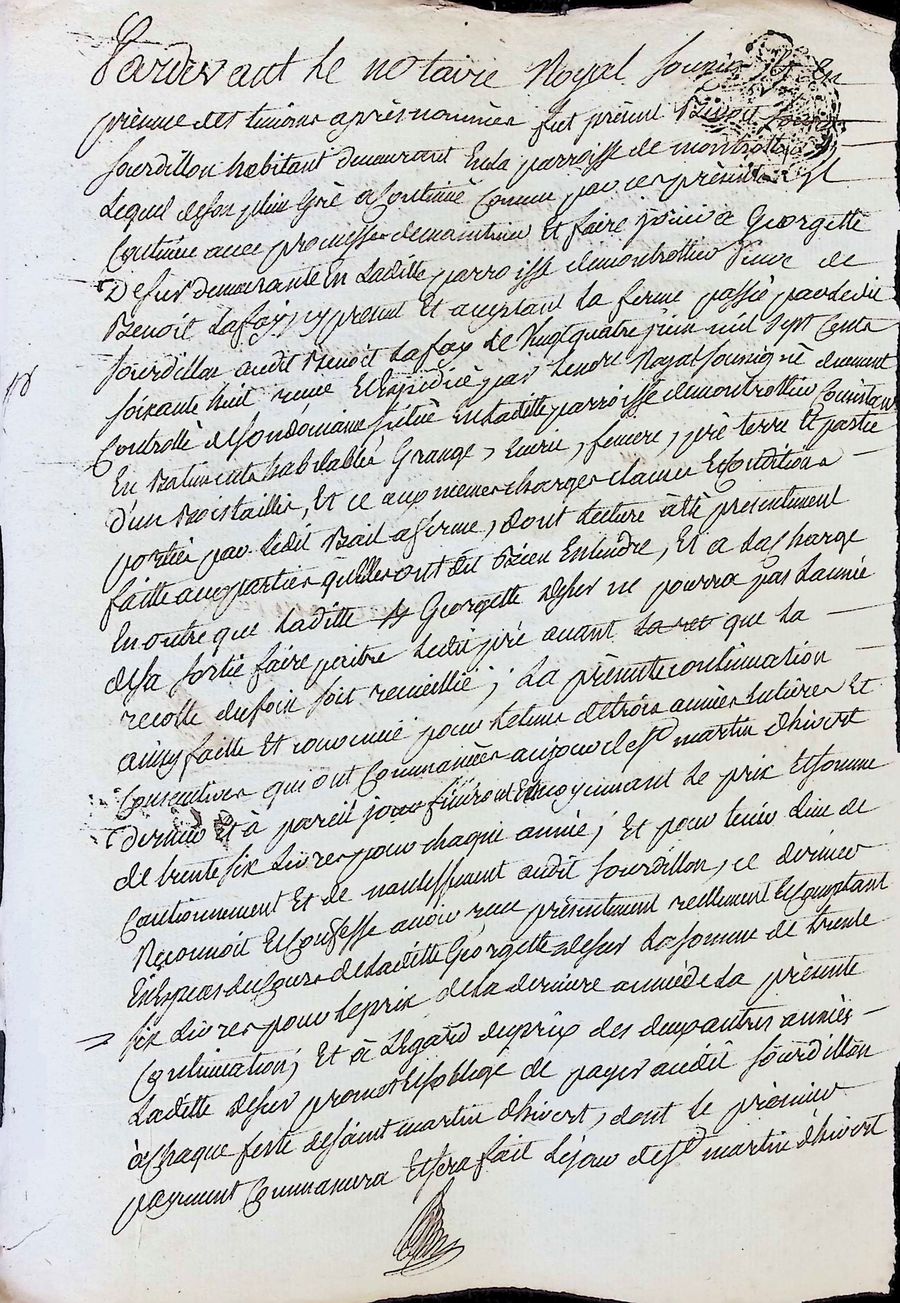 Pardevant le notaire Royal soussigné et En
présence des temoins après nommés fut présent Benoit
sourdillon habitant demeurant En la parroisse de montrottier
Lequel de son plein Gré a Continué Comme par ces présentes Il
Continue avec promesse de maintenir Et faire jouir a Georgette
Desur demeurante En Laditte parroisse de montrottier veuve de
Benoit Lafay, cy present Et acceptant La ferme passée par ledit
sourdillon audit Benoit Lafay le Vingt quatre juin mil sept Cents
soixante huit reçue Et Expédiée par le notre Royal soussigné duement
Controllé de son domaine situé En laditte parroisse de montrottier Consistant
En Batiments habitables Grange, Ecurie, feniere, pré terre Et partie
d'un Bois taillis, Et ce aux memes charges clauses Et Conditions
portées par ledit Bail a ferme, dont lecture a été presentement
faitte aux parties qu'elles ont dit Bien Entendre, Et a La charge
En outre que laditte Georgette Desur ne pourra pas l'année
de sa sortie faire paitre ledit pré avant la ret que la
recolte du foin soit recueillie; La présente continuation
ainsy faitte Et convenue pour le tems de trois années Entieres Et
Consecutives qui ont Commancées au jour de st martin d'hivert
dernier Et à pareil jour finiront Et moyennant le prix Et somme
de trente six Livres pour chaque année; Et pour tenir Lieu de
Cautionnement Et de nantissement audit sourdillon, ce dernier
Reconnoit Et Confesse avoir reçu présentement reellement Et Comptant
En Especes de Cours de laditte Georgette Desur La somme de trente
six Livres pour le prix de la derniere année de la présente
Continuation; Et à L'égard du prix des deux autres années
Laditte Desur promet Et s'oblige de payer audit sourdillon
à chaque feste de saint martin d'hivert, dont le premier
payement Commancera Et sera fait le jour de st martin d'hivert